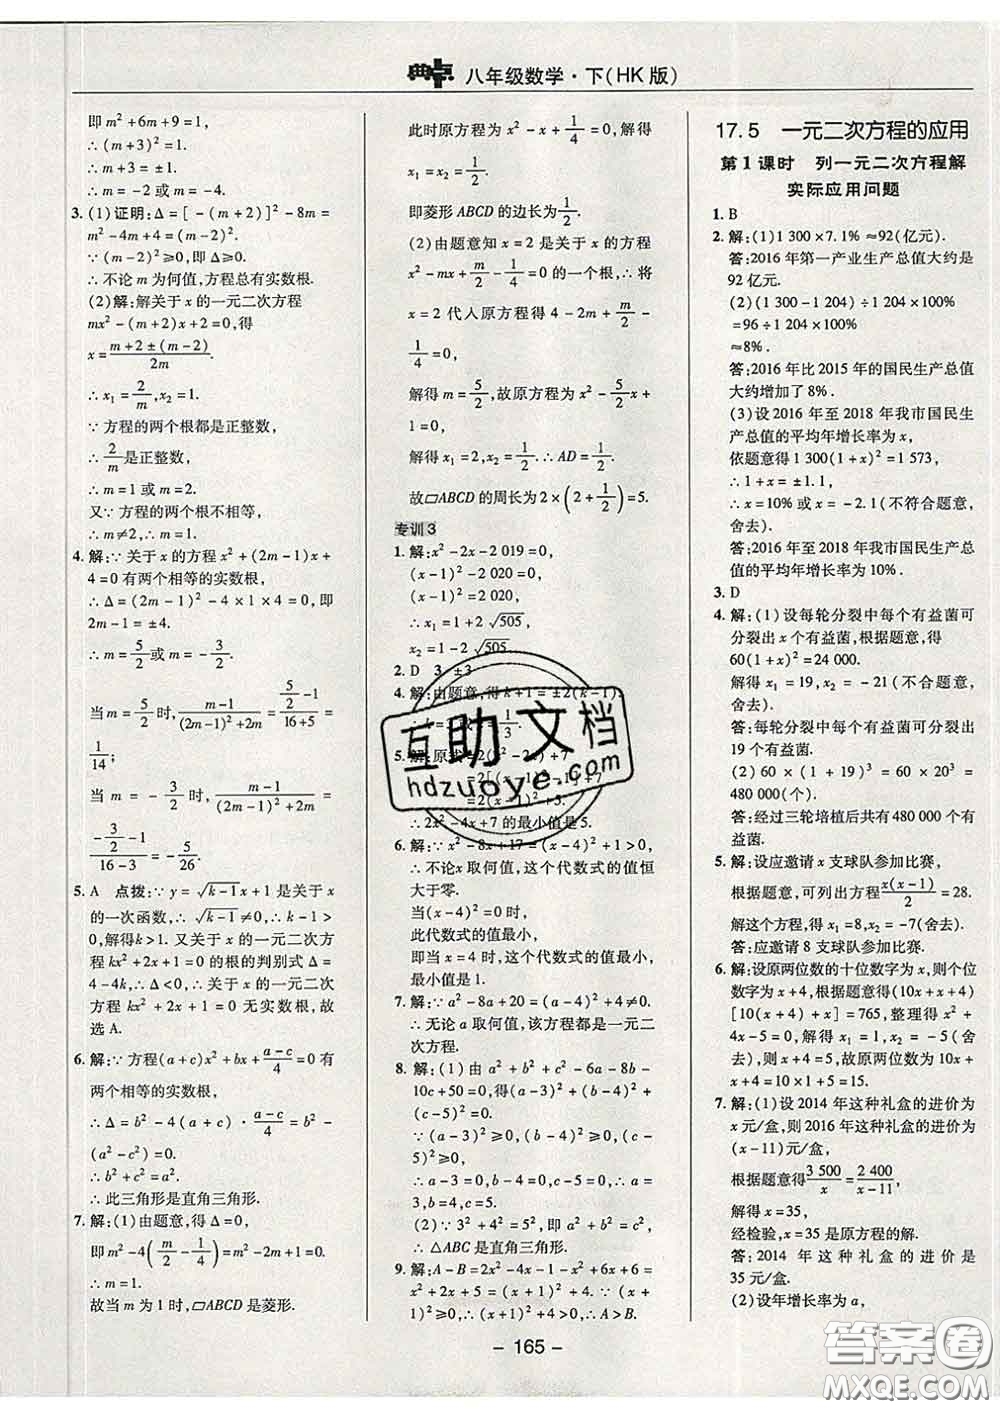 典点 八年级数学·下(HK版)
即 m²+6m+9=1,
∴(m+3)²=1.
∴m+3=±1.
∴m=-2或m=-4.
3. (1)证明:Δ=[-(m+2)]²-8m=
m²-4m+4=(m-2)².
∵(m-2)²≥0,即Δ≥0.
∴不论m为何值,方程总有实数根.
(2)解:解关于x的一元二次方程
mx²-(m+2)x+2=0,得
x=(m+2±(m-2))/2m.
∴x₁=2/m,x₂=1.
∵方程的两个根都是正整数,
∴2/m是正整数,
∴m=1或m=2.
又∵方程的两个根不相等,
∴m≠2,∴m=1.
4. 解:∵关于x的方程x²+(2m-1)x+
4=0有两个相等的实数根,
∴Δ=(2m-1)²-4×1×4=0,即
2m-1=±4.
∴m=5/2或m=-3/2.
当m=5/2时,(m-1)/((2m-1)²+2m)=(5/2-1)/(16+5)=
1/14;
当m=-3/2时,(m-1)/((2m-1)²+2m)=
(-3/2-1)/(16-3)=-5/26.
5. A 点拨:∵y=√(k-1)x+1是关于x
的一次函数,∴√(k-1)≠0,∴k-1>
0,解得k>1.又关于x的一元二次方
程kx²+2x+1=0的根的判别式Δ=
4-4k,∴Δ<0,∴关于x的一元二次
方程kx²+2x+1=0无实数根,故
选A.
6. 解:∵方程(a+c)x²+bx+(a-c)/4=0有
两个相等的实数根,
∴Δ=b²-4(a+c)·(a-c)/4=b²-
(a²-c²)=0.
∴b²+c²=a².
∴此三角形是直角三角形.
7. 解:(1)由题意,得Δ=0,
即m²-4(m/2-1/4)=m²-2m+1=0,
∴m=1.
故当m为1时,▱ABCD是菱形.
此时原方程为x²-x+1/4=0,解得
x₁=x₂=1/2.
即菱形ABCD的边长为1/2.
(2)由题意知x=2是关于x的方程
x²-mx+m/2-1/4=0的一个根,∴将
x=2代入原方程得4-2m+m/2-
1/4=0,
解得m=5/2,故原方程为x²-5/2x+
1=0,
解得x₁=2,x₂=1/2.∴AD=1/2.
故▱ABCD的周长为2×(2+1/2)=5.
专训3
1. 解:x²-2x-2 019=0,
(x-1)²-2 020=0,
(x-1)²=2 020,
∴x₁=1+2√505,
x₂=1-2√505.
2. D 3. ±3
4. 解:由题意,得k+1=±2(k-1).
5. 解:原式=2(x²-2x)+7
=2[(x-1)²-1]+7
=2(x-1)²+5.
∴2x²-4x+7的最小值是5.
6. 解:∵x²-8x+17=(x-4)²+1>0,
∴不论x取何值,这个代数式的值恒
大于零.
当(x-4)²=0时,
此代数式的值最小,
即当x=4时,这个代数式的值最小,
最小值是1.
7. 解:∵a²-8a+20=(a-4)²+4≠0.
∴无论a取何值,该方程都是一元二
次方程.
8. 解:(1)由a²+b²+c²-6a-8b-
10c+50=0,得(a-3)²+(b-4)²+
(c-5)²=0,
∵(a-3)²≥0,(b-4)²≥0,
(c-5)²≥0,
∴a-3=0,b-4=0,c-5=0,∴a=
3,b=4,c=5.
(2)∵3²+4²=5²,即a²+b²=c²,
∴△ABC是直角三角形.
9. 解:A-B=2x²-4x-1-x²+6x+6=
x²+2x+5=(x+1)²+4.∵(x+
1)²≥0,∴(x+1)²+4>0,∴A>B.
17.5 一元二次方程的应用
第1课时 列一元二次方程解
实际应用问题
1. B
2. 解:(1)1 300×7.1%≈92(亿元).
答:2016年第一产业生产总值大约是
92亿元.
(2)(1 300-1 204)÷1 204×100%
=96÷1 204×100%
≈8%.
答:2016年比2015年的国民生产总值
大约增加了8%.
(3)设2016年至2018年我市国民生
产总值的平均年增长率为x,
依题意得1 300(1+x)²=1 573,
∴1+x=±1.1,
∴x=10%或x=-2.1(不符合题意,
舍去).
答:2016年至2018年我市国民生产总
值的平均年增长率为10%.
3. D
4. 解:(1)设每轮分裂中每个有益菌可
分裂出x个有益菌,根据题意,得
60(1+x)²=24 000.
解得x₁=19,x₂=-21(不符合题意,
舍去).
答:每轮分裂中每个有益菌可分裂出
19个有益菌.
(2)60×(1+19)³=60×20³=
480 000(个).
答:经过三轮培植后共有480 000个有
益菌.
5. 解:设应邀请x支球队参加比赛,
根据题意,可列出方程x(x-1)/2=28.
解这个方程,得x₁=8,x₂=-7(舍去).
答:应邀请8支球队参加比赛.
6. 解:设原两位数的十位数字为x,则个位
数字为x+4,根据题意得(10x+x+4)
[10(x+4)+x]=765,整理得x²+
4x-5=0,解得x₁=1,x₂=-5(舍
去),x+4=5,故原两位数为10x+
x+4=15.
7. 解:(1)设2014年这种礼盒的进价为
x元/盒,则2016年这种礼盒的进价为
(x-11)元/盒,
根据题意得3 500/x=2 400/(x-11),
解得x=35,
经检验,x=35是原方程的解.
答:2014年这种礼盒的进价是
35元/盒.
(2)设年增长率为a,
- 165 -
互助文档
hdzuoye.com
答案圈
MXQE.COM